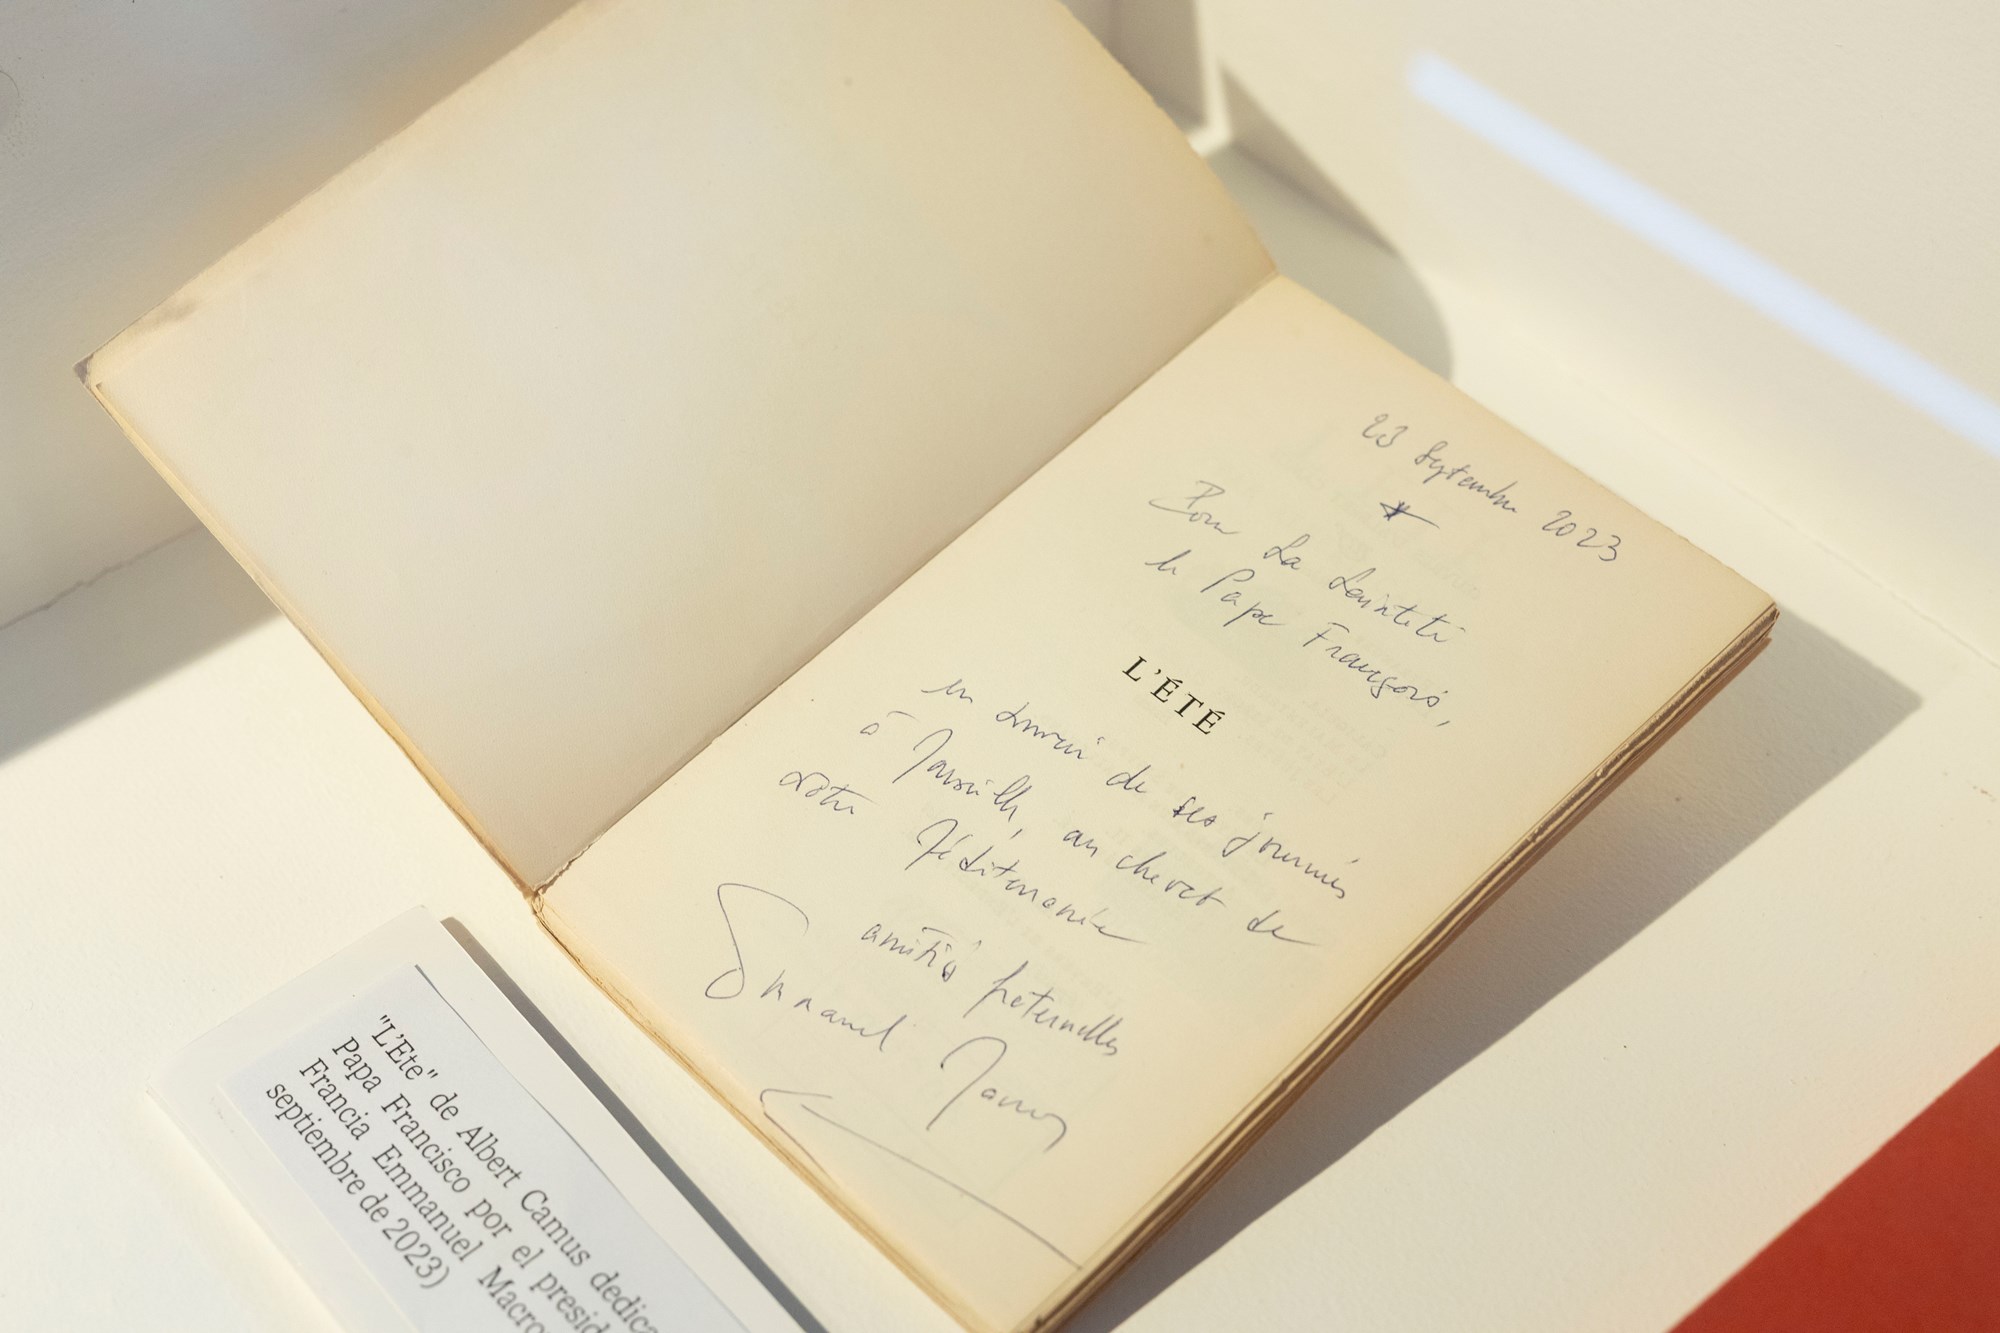 23 Septembre 2023
Pour Sa Sainteté
le Pape François,
L'ÉTÉ
en souvenir de ses journées
à Marseille, au chevet de
notre Méditerranée
amitiés fraternelles
Emmanuel Macron
"L'Ete" de Albert Camus dedica
Papa Francisco por el presid
Francia Emmanuel Macro
septiembre de 2023)